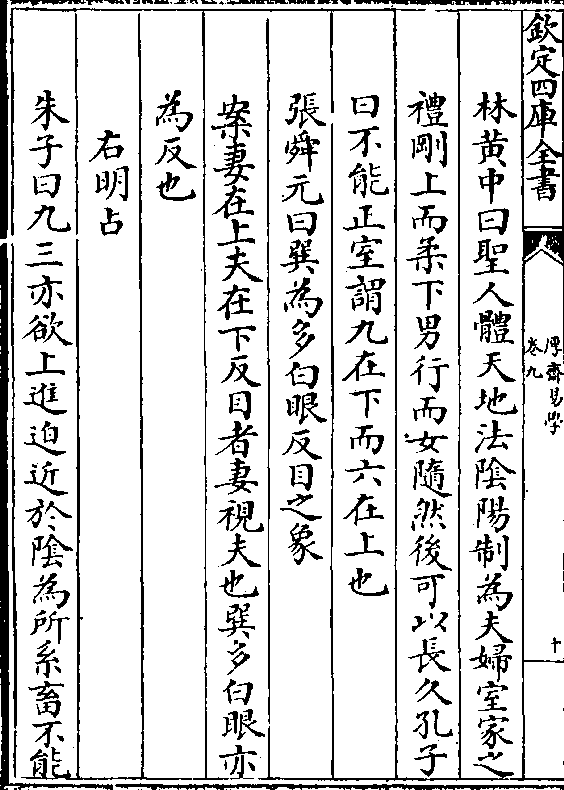 欽定四庫全書
厚齋易學
卷九
十
林黄中曰聖人體天地法陰陽制為夫婦室家之
禮剛上而柔下男行而女隨然後可以長久孔子
曰不能正室謂九在下而六在上也
張舜元曰巽為多白眼反目之象
案妻在上夫在下反目者妻視夫也巽多白眼亦
為反也
右明占
朱子曰九三亦欲上進迫近於陰為所系畜不能